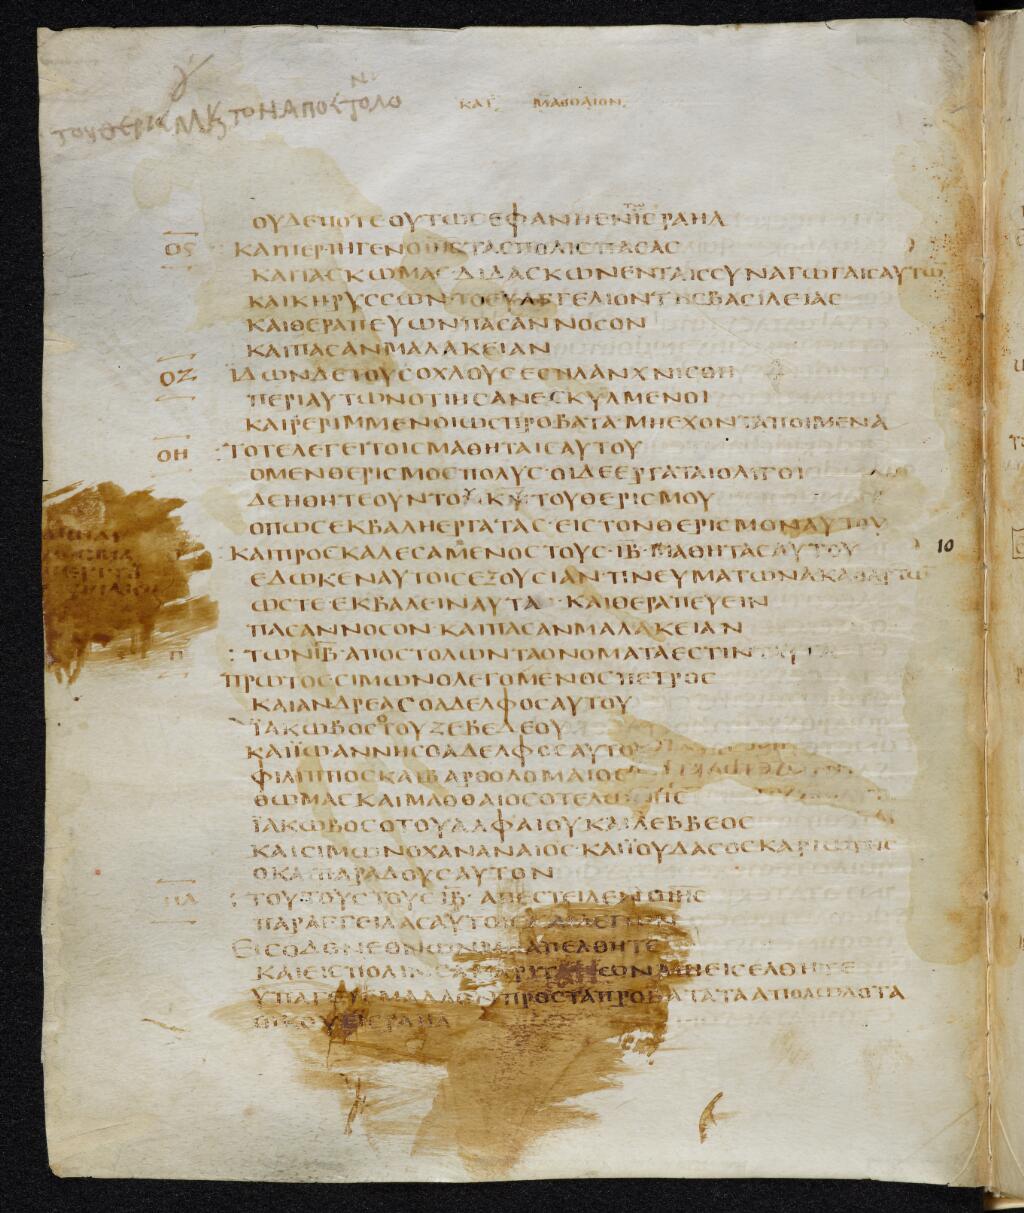 ΚΑΤ ΜΑΘΘΑΙΟΝ
ΤΟΝ ΑΠΟΣΤΟΛΟ
ΟΥΔΕΠΟΤΕΟΥΤΩΣΕΦΑΝΗΕΝΙΣΡΑΗΛ
ΟϚ ΚΑΙΠΕΡΙΗΓΕΝΟΙΗΣΤΑΣΠΟΛΙΣΠΑΣΑΣ
ΚΑΙΤΑΣΚΩΜΑΣ·ΔΙΔΑΣΚΩΝΕΝΤΑΙΣΣΥΝΑΓΩΓΑΙΣΑΥΤΩ
ΚΑΙΚΗΡΥΣΣΩΝ·ΤΟΕΥΑΓΓΕΛΙΟΝΤΗΣΒΑΣΙΛΕΙΑΣ
ΚΑΙΘΕΡΑΠΕΥΩΝΠΑΣΑΝΝΟΣΟΝ
ΚΑΙΠΑΣΑΝΜΑΛΑΚΕΙΑΝ
ΟΖ ΪΔΩΝΔΕΤΟΥΣΟΧΛΟΥΣΕΣΠΛΑΝΧΝΙΣΘΗ
ΠΕΡΙΑΥΤΩΝΟΤΙΗΣΑΝΕΣΚΥΛΜΕΝΟΙ
ΚΑΙΡΕΡΙΜΜΕΝΟΙΩΣΠΡΟΒΑΤΑ·ΜΗΕΧΟΝΤΑΠΟΙΜΕΝΑ
ΟΗ ΤΟΤΕΛΕΓΕΙΤΟΙΣΜΑΘΗΤΑΙΣΑΥΤΟΥ
ΟΜΕΝΘΕΡΙΣΜΟΣΠΟΛΥΣ·ΟΙΔΕΕΡΓΑΤΑΙΟΛΙΓΟΙ
ΔΕΗΘΗΤΕΟΥΝΤΟΥΚΥΤΟΥΘΕΡΙΣΜΟΥ
ΟΠΩΣΕΚΒΑΛΗΕΡΓΑΤΑΣ·ΕΙΣΤΟΝΘΕΡΙΣΜΟΝΑΥΤΟΥ
ΚΑΙΠΡΟΣΚΑΛΕΣΑΜΕΝΟΣΤΟΥΣ·ΙΒ·ΜΑΘΗΤΑΣΑΥΤΟΥ 10
ΕΔΩΚΕΝΑΥΤΟΙΣΕΞΟΥΣΙΑΝ·ΠΝΕΥΜΑΤΩΝΑΚΑΘΑΡΤΩ
ΩΣΤΕ·ΕΚΒΑΛΕΙΝΑΥΤΑ·ΚΑΙΘΕΡΑΠΕΥΕΙΝ
ΠΑΣΑΝΝΟΣΟΝ·ΚΑΙΠΑΣΑΝΜΑΛΑΚΕΙΑΝ
Π ΤΩΝΙΒ·ΑΠΟΣΤΟΛΩΝΤΑΟΝΟΜΑΤΑΕΣΤΙΝΤΑΥΤΑ
ΠΡΩΤΟΣΣΙΜΩΝΟΛΕΓΟΜΕΝΟΣΠΕΤΡΟΣ
ΚΑΙΑΝΔΡΕΑΣΟΑΔΕΛΦΟΣΑΥΤΟΥ
ΪΑΚΩΒΟΣΟΤΟΥΖΕΒΕΔΕΟΥ
ΚΑΙΪΩΑΝΝΗΣΟΑΔΕΛΦΟΣΑΥΤΟΥ
ΦΙΛΙΠΠΟΣΚΑΙΒΑΡΘΟΛΟΜΑΙΟΣ
ΘΩΜΑΣΚΑΙΜΑΘΘΑΙΟΣΟΤΕΛΩΝΗΣ
ΪΑΚΩΒΟΣΟΤΟΥΑΛΦΑΙΟΥΚΑΙΛΕΒΒΕΟΣ
ΚΑΙΣΙΜΩΝΟΧΑΝΑΝΑΙΟΣ·ΚΑΙΪΟΥΔΑΣΟΣΚΑΡΙΩΤΗΣ
ΟΚΑΙΠΑΡΑΔΟΥΣΑΥΤΟΝ
ΠΑ ΤΟΥΤΟΥΣΤΟΥΣΙΒ·ΑΠΕΣΤΕΙΛΕΝΟΙΗΣ
ΠΑΡΑΓΓΕΙΛΑΣΑΥΤΟΙΣΚΑΙΛΕΓΩΝ
ΕΙΣΟΔΟΝΕΘΝΩΝΜΗΑΠΕΛΘΗΤΕ
ΚΑΙΕΙΣΠΟΛΙΝΣΑΜΑΡΙΤΑΝΩΝΜΗΕΙΣΕΛΘΗΤΕ
ΥΠΑΓΕΤΕΜΑΛΛΟΝΠΡΟΣΤΑΠΡΟΒΑΤΑΤΑΑΠΟΛΩΛΟΤΑ
ΟΙΚΟΥΕΙΣΡΑΗΛ